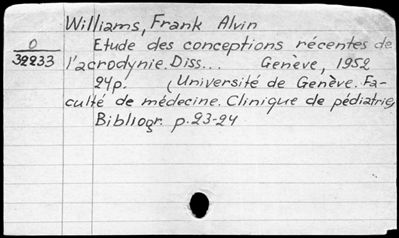 Williams, Frank Alvin
O Etude des conceptions récentes de
32233 l'acrodynie. Diss... Genève, 1952
24p. (Université de Genève. Fa-
culté de médecine. Clinique de pédiatrie)
Bibliogr. p. 23-24